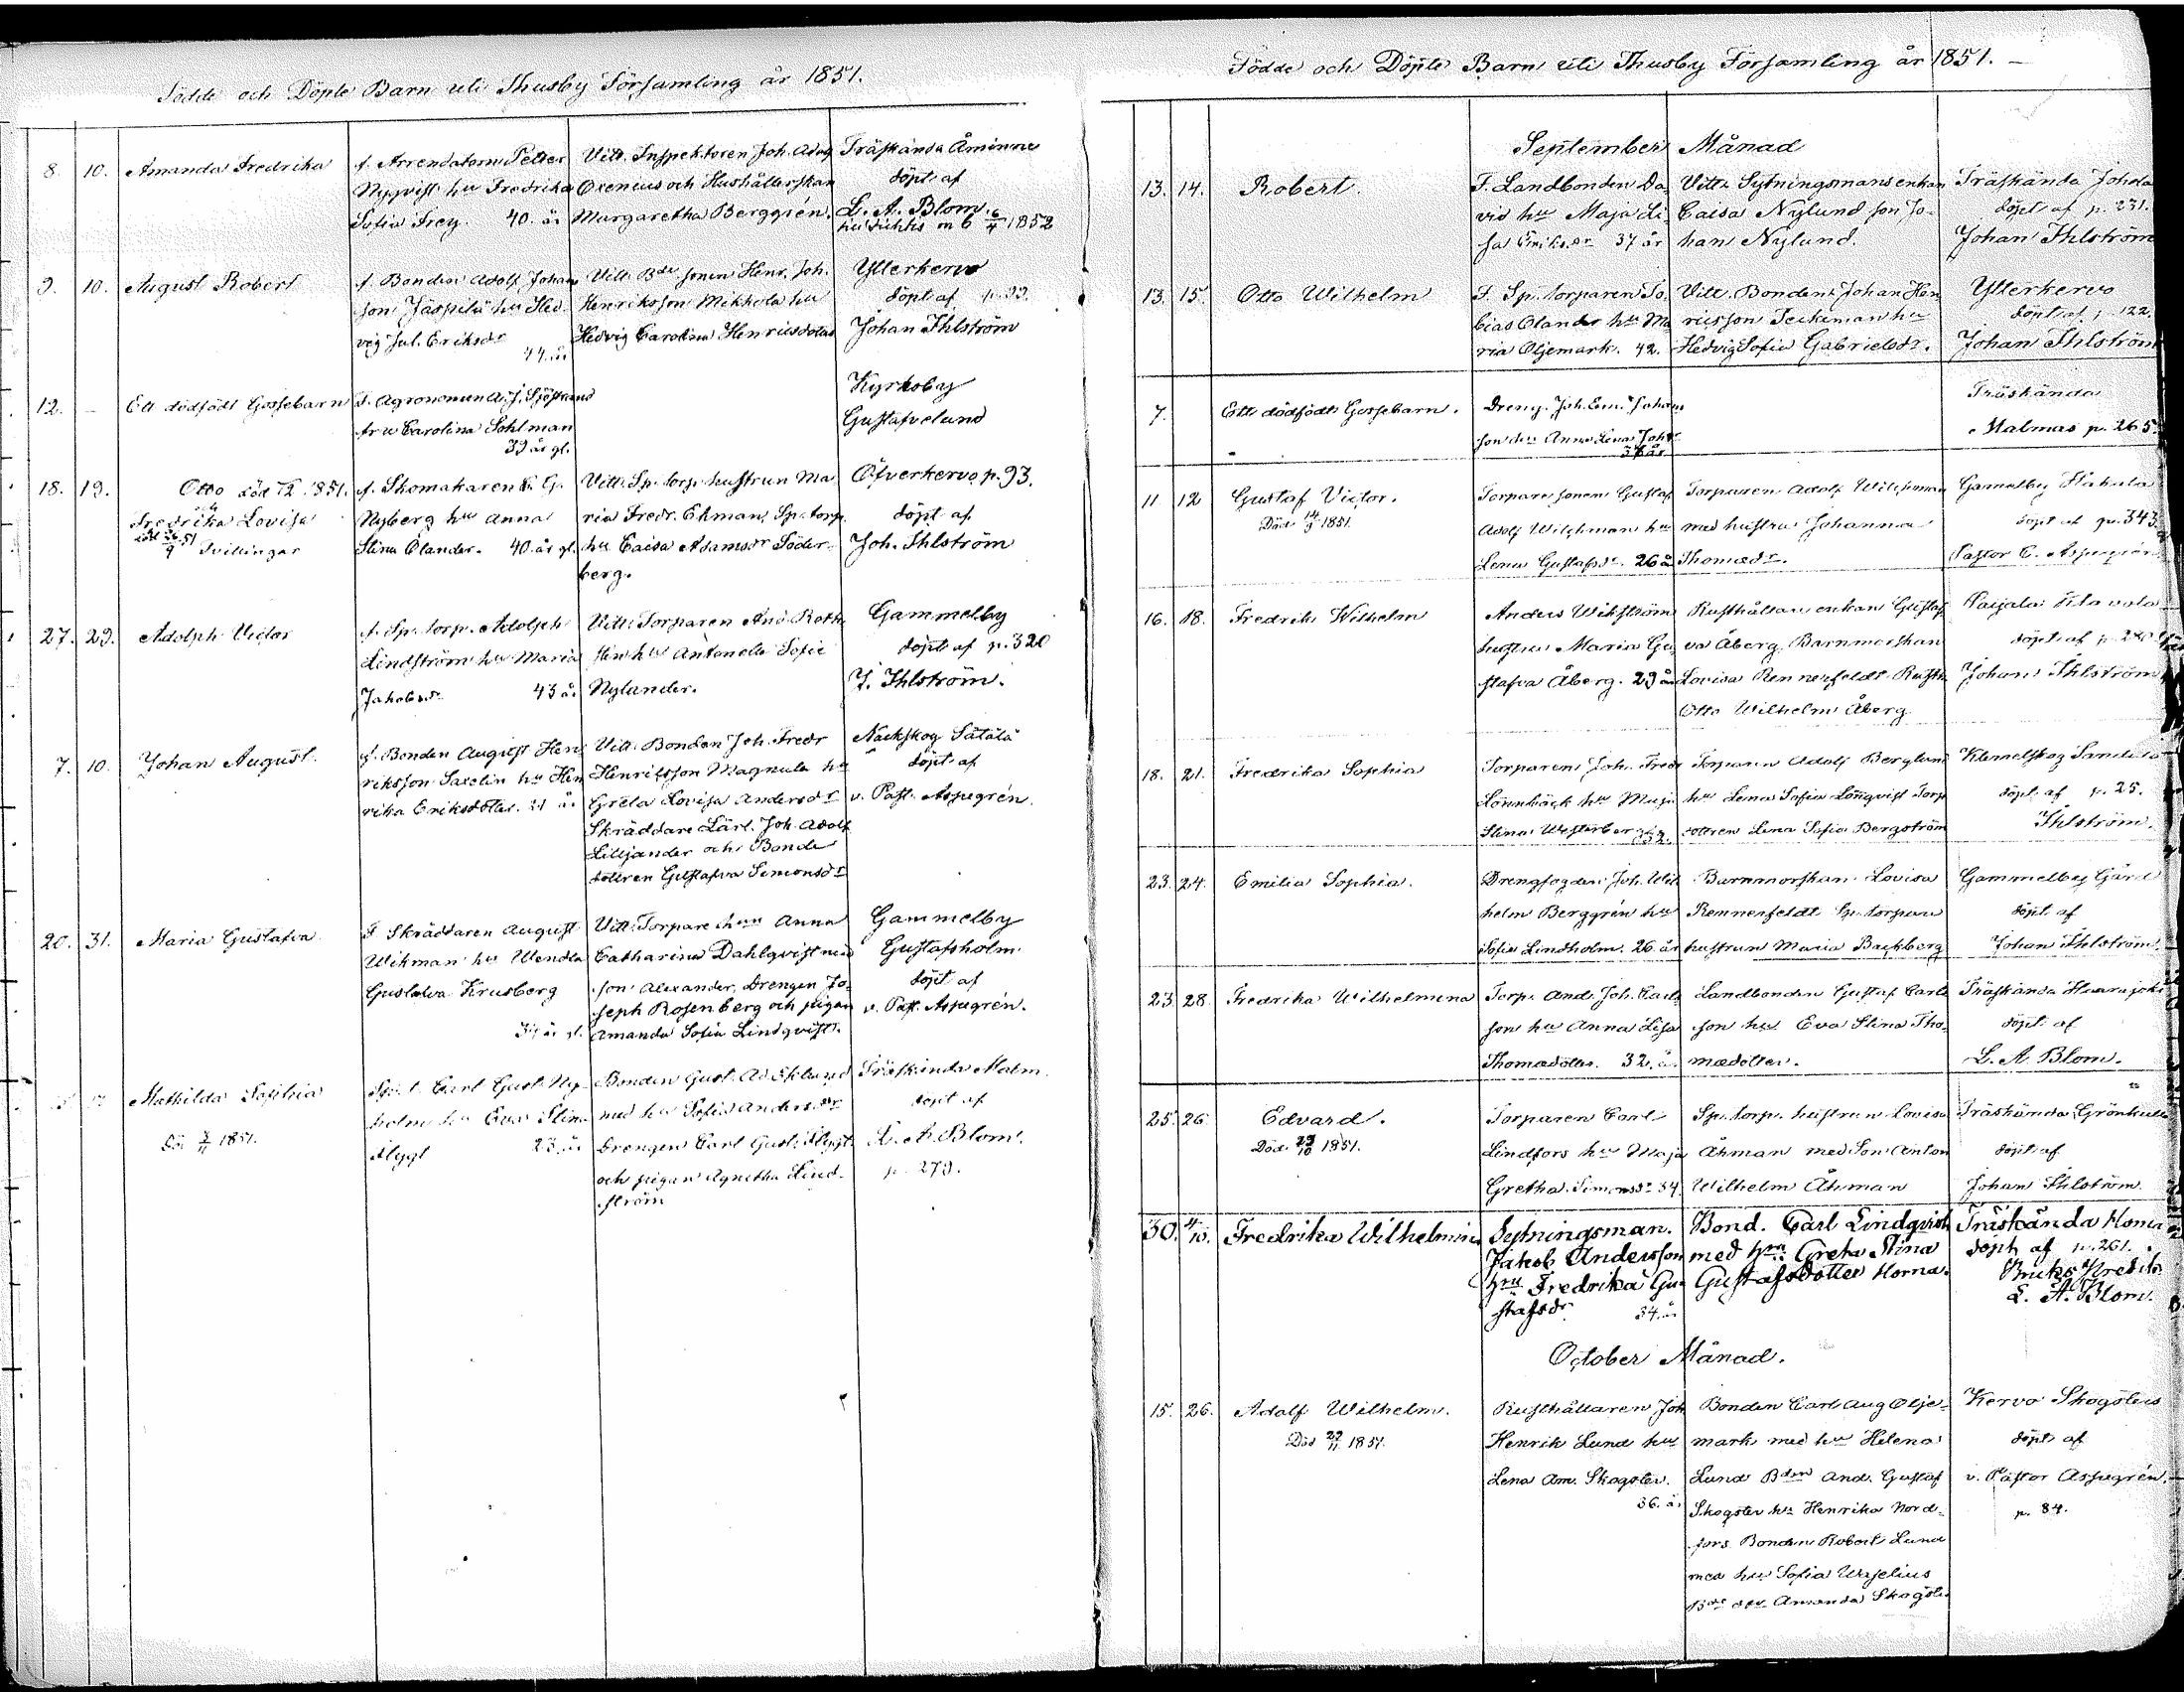 Födde och Döpte Barn uti Thusby Församling år 1851.
8. 10. Amanda Fredrika
f. Arrendatorn Petter
Nyqvist hu Fredrika
Sofia Frey. 40. år
Vitt. Inspektoren Joh. Adog
Oxenius och Hushållerskan
Margaretha Berggrén.
Träskända Åminne
döpt af
L. A. Blom.
6/4 1852
9. 10. August Robert
f. Bonden Adolf Johan
son Jäspilä hu Hed
vig Jul. Eriksdr
44. år
Vitt. Bde sonen Henr. Joh.
Henriksson Mikkola hu
Hedvig Carolina Henriksdotter
Ytterkervo
döpt af p. 99.
Johan Ihlström
12. – Ett dödfödt Gossebarn
F. Agronomen A. J. Sjöstrand
fru Carolina Sohlman
39 år gl.
Kyrkoby
Gustafvelund
18. 19. Otto död 1851.
Fredrika Lovisa
Tvillingar
f. Skomakaren K. G.
Nyberg hu Anna
Stina Ölander. 40. år gl.
Vitt. Sp. torp. hustrun Ma
ria Fredr. Ekman, Sp. torp.
hu Caisa Adamsdr Söder-
berg.
Öfverkervo p. 93.
döpt af
Joh. Ihlström
27. 29. Adolph Victor
f. Sp. torp. Adolph
Lindström hu Maria
Jakobsdr 43 år
Vitt. Torparen And. Roth
sten hu Antonetta Sofie
Nylander.
Gammelby
döpt af p. 320
J. Ihlström.
7. 10. Johan August.
f. Bonden August Hen
riksson Saxelin hu Hen
rika Eriksdotter. år
Vitt. Bonden Joh. Fredr
Henriksson Magnula hu
Greta Lovisa Andersdr
Skräddare Lärl. Joh. Adolf
Liljander och Bonde
dottren Gustafva Simonsdr
Nackskog Sätälä
döpt af
v. Past. Aspegrén.
20. 31. Maria Gustafva
F Skräddaren August
Wikman hu Wendla
Gustafva Krusberg
år gl.
Vitt. Torpare hun Anna
Catharina Dahlqvist med
son Alexander, Drengen Jo-
seph Rosenberg och pigan
Amanda Sofia Lindqvist.
Gammelby
Gustafsholm
döpt af
v. Past. Aspegrén.
Mathilda Sophia
Död 3/11 1851.
Carl Gust. Ny-
holm hu Eva Stina
Flygt 23. år
Bonden Gust. Ad. Eklund
med hu Sofia Andersdr
Drengen Carl Gust. Flygt
och pigan Agnetha Lind-
ström
Träskända Malm.
döpt af
L. A. Blom.
p. 279.
Födde och Döpte Barn uti Thusby Församling år 1851. –
September Månad
13. 14. Robert.
F. Landbonden Da
vid hu Maja Li
sa Eriksdr 37 år
Vittn Sytningsmansenkan
Caisa Nylund son Jo-
han Nylund.
Träskända Johola
döpt af p. 231.
Johan Ihlström
13. 15. Otto Wilhelm
F. Sp. torparen To
bias Olander hu Ma
ria Oljemark. 42.
Vitt. Bonden Johan Hen
ricsson Teckiman hu
Hedvig Sofia Gabrielsdr.
Ytterkervo
döpt af p. 122.
Johan Ihlström
7. Ett dödfödt Gossebarn.
Dreng. Joh. Em. Johans
son hu Anna Lena Johsdr
Träskända
Malmas p. 265
11 12 Gustaf Victor.
Död 14/9 1851.
Torpare sonen Gustaf
Adolf Wilchman hu
Lena Gustafsdr. 26 år
Torparen Adolf Wilchman
med hustru Johanna
Thomædr.
Gamelby Hakula
döpt af p. 343.
Pastor C. Aspegrén
16. 18. Fredrik Wilhelm
Anders Wikström
hustru Maria Gu
stafva Åberg. 29 år
Rusthållare enkan Gustaf
va Åberg, Barnmorskan
Lovisa Rennerfeldt Rusth
Otto Wilhelm Åberg
Paijala
döpt af p.
Johan Ihlström
18. 21. Fredrika Sophia
Torparen Joh. Fredr
Lönnbäck hu Maja
Stina Westerberg
Torparen Adolf Berglund
hu Lena Sofia Lönqvist Torp
dottren Lena Sofia Bergström
Klemetskog
döpt af p. 25.
Ihlström.
23. 24. Emilia Sophia.
Drengfogden Joh. Wil
helm Berggrén hu
Sofia Lindholm. 26 år
Barnmorskan Lovisa
Rennerfeldt Sp. torpare
hustrun Maria Backberg
Gammelby Gård
döpt af
Johan Ihlström.
23. 28. Fredrika Wilhelmina
Torp. And. Joh. Carls
son hu Anna Lisa
Thomædotter. 32. år
Landbonden Gustaf Carls
son hu Eva Stina Tho-
mædotter.
Träskända Haarajoki
döpt af
L. A. Blom.
25. 26. Edvard.
Död 29/10 1851.
Torparen Carl
Lindfors hu Maja
Gretha Simonsdr 34.
Sp. torp. hustrun Lovisa
Åhman med Son Anton
Wilhelm Åhman
Träskända Grönkulla
döpt af
Johan Ihlström.
30. 4/10. Fredrika Wilhelmina
Sytningsman.
Jakob Andersson
hru Fredrika Gu
stafsdr 34. år
Bond. Carl Lindqvist
med hru Greta Stina
Gustafsdotter Horna.
Träskända Horna
döpt af p. 261.
Bruks Predik.
L. A. Blom.
October Månad.
15. 26. Adolf Wilhelm.
Död 29/11 1851.
Rusthållaren Joh
Henrik Lund hu
Lena Am. Skogster.
36. år
Bonden Carl Aug Olje-
mark med hu Helena
Lund Bden And. Gustaf
Skogster hu Henrika Nord-
fors Bonden Robert Lund
med hu Sofia Waselius
Amanda Skogster
Kervo Skogsters
döpt af
v. Pastor Aspegrén.
p. 84.